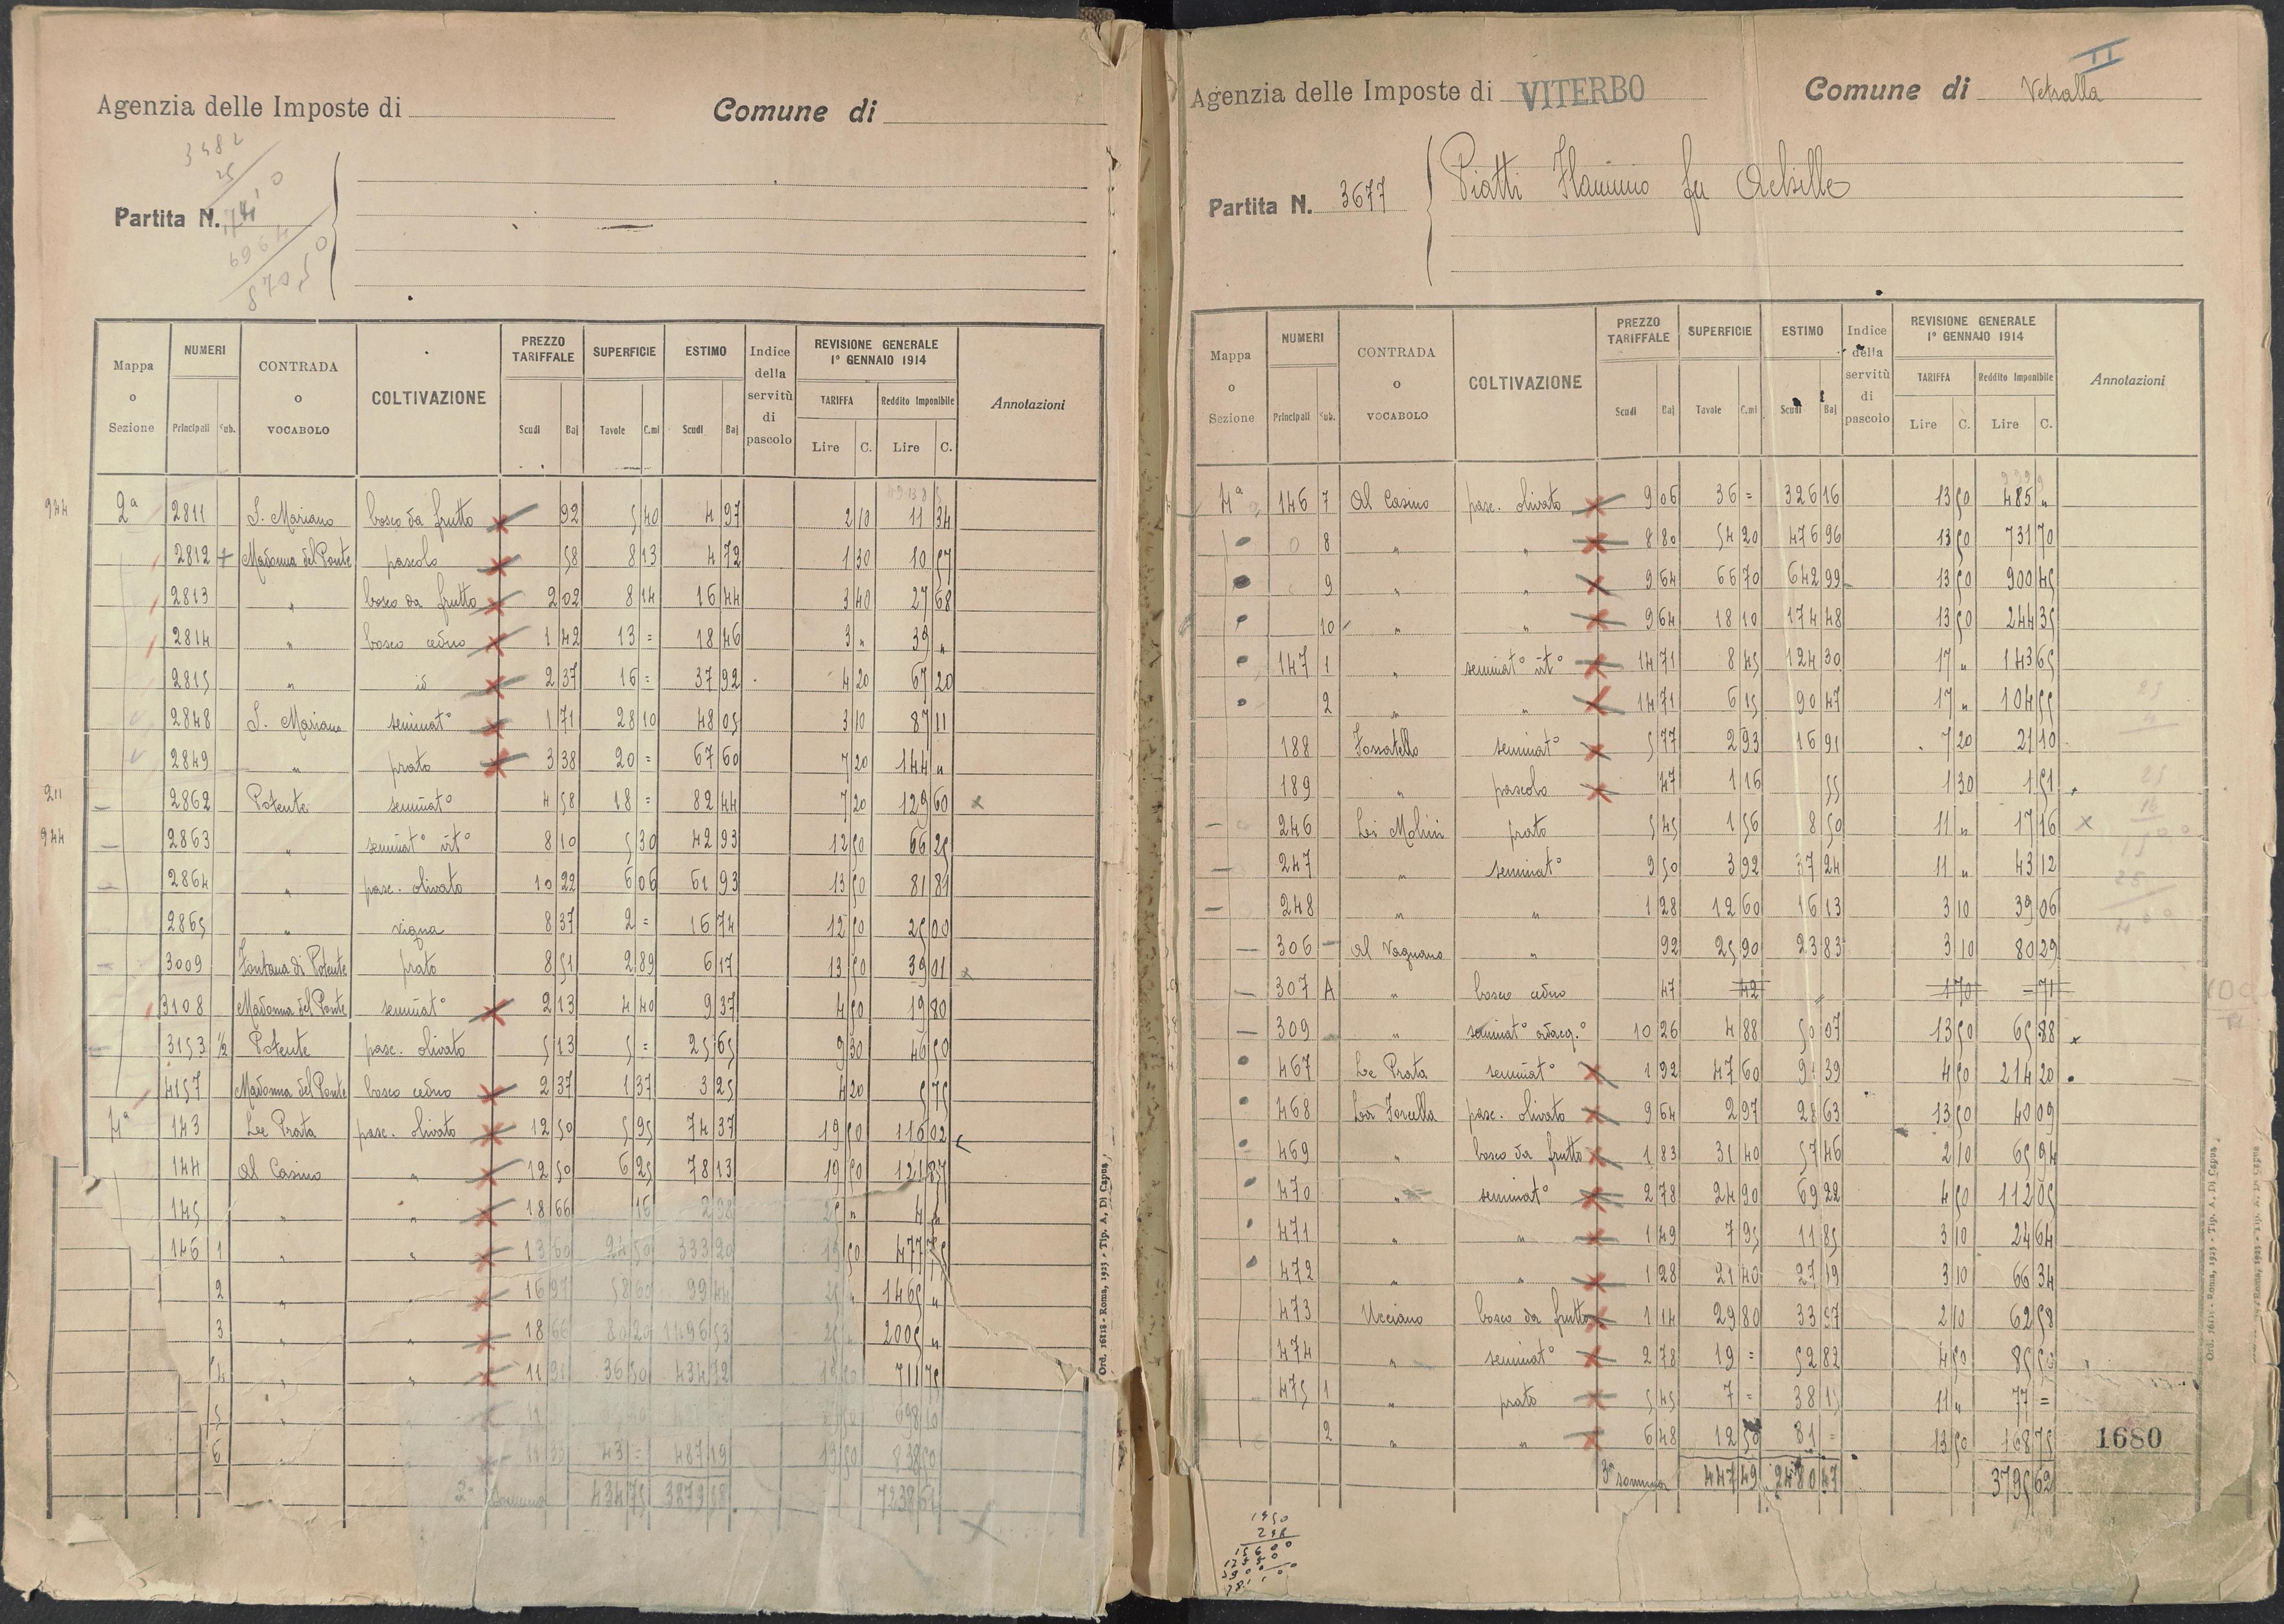 Agenzia delle Imposte di
Comune di
3482
25
Partita N.
Mappa o Sezione
NUMERI
Principali Sub.
CONTRADA o VOCABOLO
COLTIVAZIONE
PREZZO TARIFFALE
Scudi Baj
SUPERFICIE
Tavole C.mi
ESTIMO
Scudi Baj
Indice della servitù di pascolo
REVISIONE GENERALE 1° GENNAIO 1914
TARIFFA
Lire C.
Reddito Imponibile
Lire C.
Annotazioni
944 2a 2811 S. Mariano bosco da frutto 92 5 40 4 97 2 10 11 34
2812 Madonna del Ponte pascolo 58 8 13 4 72 1 30 10 57
2813 " bosco da frutto 2 02 8 14 16 44 3 40 27 68
2814 " bosco ceduo 1 42 13 = 18 46 3 " 39 "
2815 " id 2 37 16 = 37 92 4 20 67 20
2848 S. Mariano seminat° 1 71 28 10 48 05 3 10 87 11
2849 " prato 3 38 20 = 67 60 7 20 144 "
211 2862 Potente seminat° 4 58 18 = 82 44 7 20 129 60 x
944 2863 " seminat° vit° 8 10 5 30 42 93 12 50 66 25
2864 " pasc. olivato 10 22 6 06 61 93 13 50 81 81
2865 " vigna 8 37 2 = 16 74 12 50 25 00
3009 Fontana di Potente prato 8 51 2 89 6 17 13 50 39 01 x
3108 Madonna del Ponte seminat° 2 13 4 40 9 37 4 50 19 80
3153 1/2 Potente pasc. olivato 5 13 5 = 25 65 9 30 46 50
4157 Madonna del Ponte bosco ceduo 2 37 1 37 3 25 4 20 5 75
4a 143 Le Prata pasc. olivato 12 50 5 95 74 37 19 50 116 02
144 Al Casino " 12 50 6 25 78 13 19 50 121 87
145 " " 18 66 16 2 98 25 " 4 "
146 1 " " 13 60 24 50 333 20 19 50 477 75
2 " " 16 97 58 60 99 44 25 " 1465 "
3 " " 18 66 80 20 1496 53 25 " 2005 "
4 " " 11 91 36 50 434 72 19 50 711 75
5 " " 698 10
6 11 33 43 = 487 19 19 50 838 50
2a Somma 434 75 3879 18 7238 61
Ord. 16118 - Roma, 1923 - Tip. A. Di Capua
II
Agenzia delle Imposte di VITERBO
Comune di Vetralla
Partita N. 3677
Piatti Flaminio fu Achille
Mappa o Sezione
NUMERI
Principali Sub.
CONTRADA o VOCABOLO
COLTIVAZIONE
PREZZO TARIFFALE
Scudi Baj
SUPERFICIE
Tavole C.mi
ESTIMO
Scudi Baj
Indice della servitù di pascolo
REVISIONE GENERALE 1° GENNAIO 1914
TARIFFA
Lire C.
Reddito Imponibile
Lire C.
Annotazioni
4a 146 7 Al Casino pasc. olivato 9 06 36 = 326 16 13 50 485 "
8 " " 8 80 54 20 476 96 13 50 731 70
9 " " 9 64 66 70 642 99 13 50 900 45
10 " " 9 64 18 10 174 48 13 50 244 35
147 1 " seminat° vit° 14 71 8 45 124 30 17 " 143 65
2 " " 14 71 6 15 90 47 17 " 104 55
188 Fossatello seminat° 5 77 2 93 16 91 7 20 21 10
189 " pascolo 47 1 16 55 1 30 1 51
246 Li Molini prato 5 45 1 56 8 50 11 " 17 16 x
247 " seminat° 9 50 3 92 37 24 11 " 43 12
248 " " 1 28 12 60 16 13 3 10 39 06
306 Al Vagnano " 92 25 90 23 83 3 10 80 29
307 A " bosco ceduo 47 42 " 1 70 = 71
309 " seminat° adacq.° 10 26 4 88 50 07 13 50 65 88 x
467 Le Prata seminat° 1 92 47 60 91 39 4 50 214 20
468 La Forcella pasc. olivato 9 64 2 97 28 63 13 50 40 09
469 " bosco da frutto 1 83 31 40 57 46 2 10 65 94
470 " seminat° 2 78 24 90 69 22 4 50 112 05
471 " " 1 49 7 95 11 85 3 10 24 64
472 " " 1 28 21 40 27 19 3 10 66 34
473 Ucciano bosco da frutto 1 14 29 80 33 97 2 10 62 58
474 " seminat° 2 78 19 = 52 82 4 50 85 50
475 1 " prato 5 45 7 = 38 15 11 " 77 =
2 " " 6 48 12 50 81 = 13 50 168 75
1680
3a somma 447 49 2480 47 3795 62
Ord. 16118 - Roma, 1923 - Tip. A. Di Capua